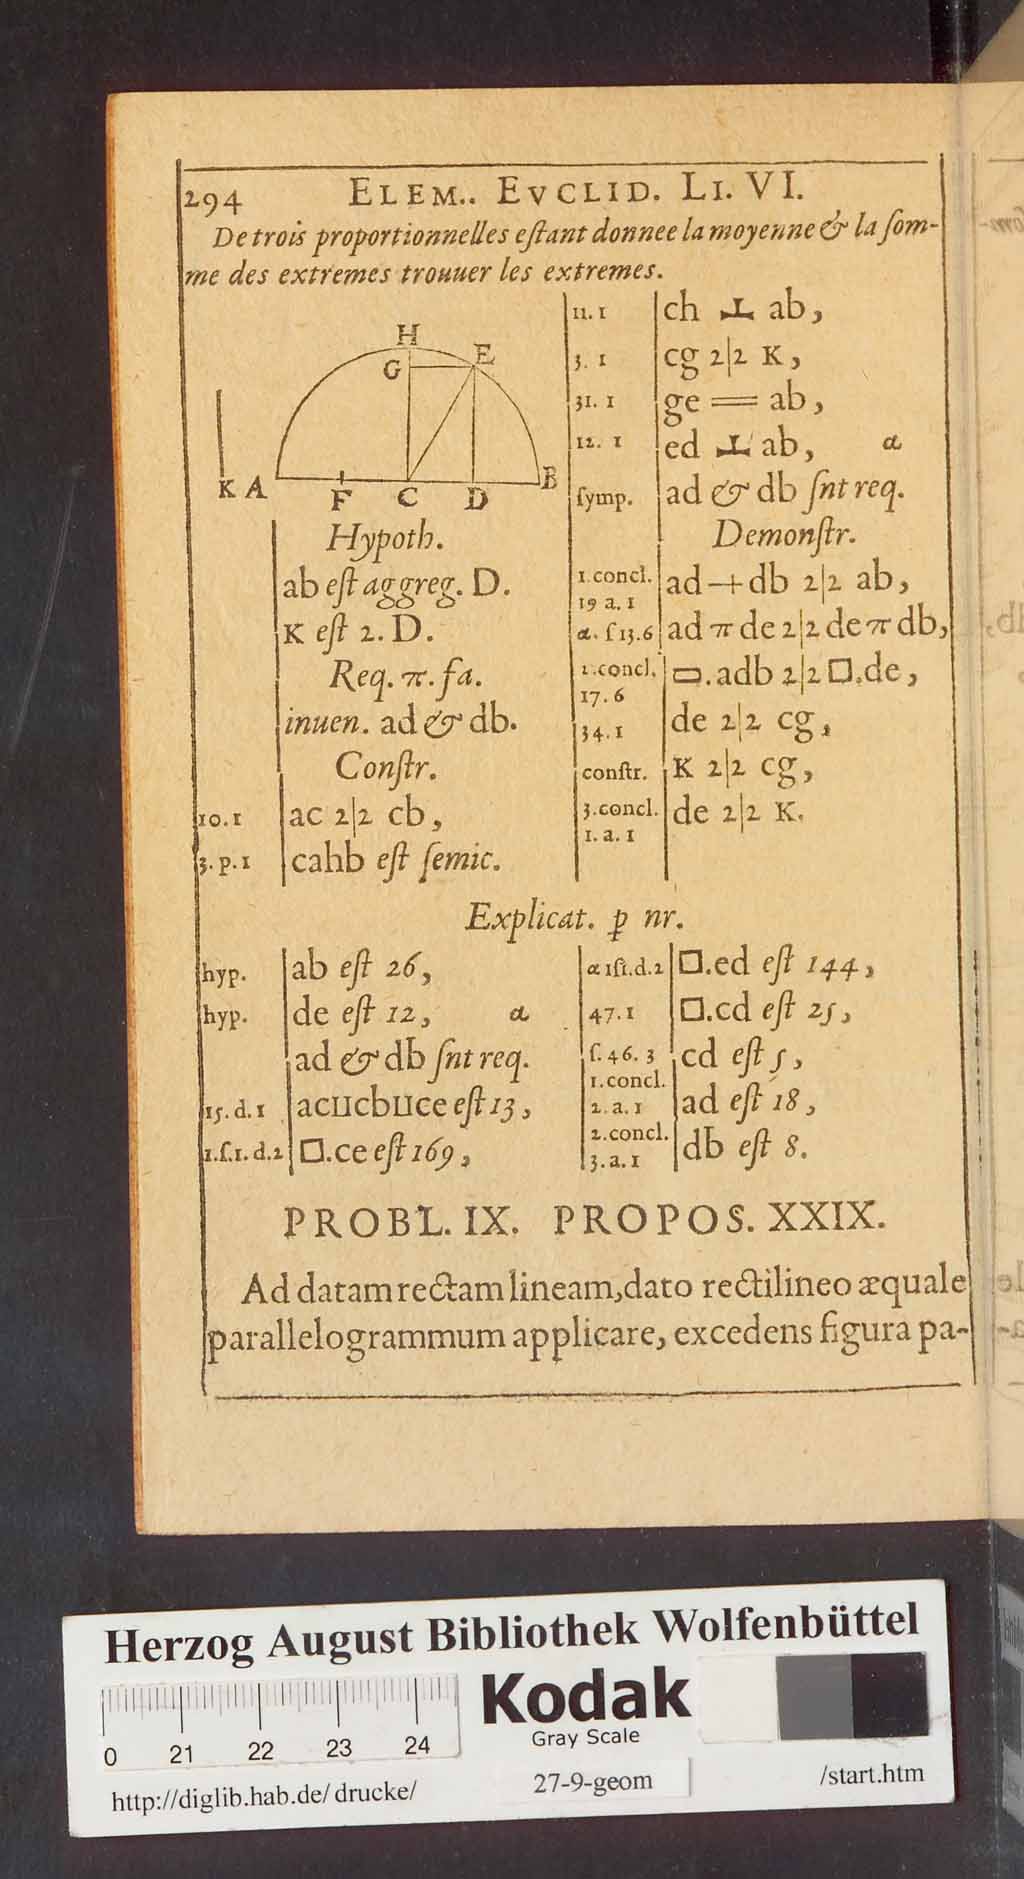 294 ELEM.. EVCLID. LI. VI.
De trois proportionnelles eſtant donnee la moyenne & la ſom-
me des extremes trouuer les extremes.
H
G E
K A F C D B
Hypoth.
ab eſt aggreg. D.
K eſt 2. D.
Req. π. fa.
inuen. ad & db.
Conſtr.
10. 1 ac 2|2 cb,
3. p. 1 cahb eſt ſemic.
11. 1 ch ⊥ ab,
3. 1 cg 2|2 K,
31. 1 ge = ab,
12. 1 ed ⊥ ab, α
ſymp. ad & db ſnt req.
Demonſtr.
1. concl. ad + db 2|2 ab,
19 a. 1
α. ſ 13.6 ad π de 2|2 de π db,
1. concl. ▭.adb 2|2 □.de,
17. 6
34. 1 de 2|2 cg,
conſtr. K 2|2 cg,
3. concl. de 2|2 K.
1. a. 1
Explicat. ꝑ nr.
hyp. ab eſt 26,
hyp. de eſt 12, α
ad & db ſnt req.
15. d. 1 ac⊔cb⊔ce eſt 13,
1.ſ.1. d.2 □.ce eſt 169,
α 1ſ1.d.2 □.ed eſt 144,
47. 1 □.cd eſt 25,
ſ. 46. 3 cd eſt 5,
1. concl.
2. a. 1 ad eſt 18,
2. concl.
3. a. 1 db eſt 8.
PROBL. IX. PROPOS. XXIX.
Ad datam rectam lineam, dato rectilineo æquale
parallelogrammum applicare, excedens figura pa-
Herzog August Bibliothek Wolfenbüttel
Kodak
Gray Scale
0 21 22 23 24
http://diglib.hab.de/drucke/ 27-9-geom /start.htm